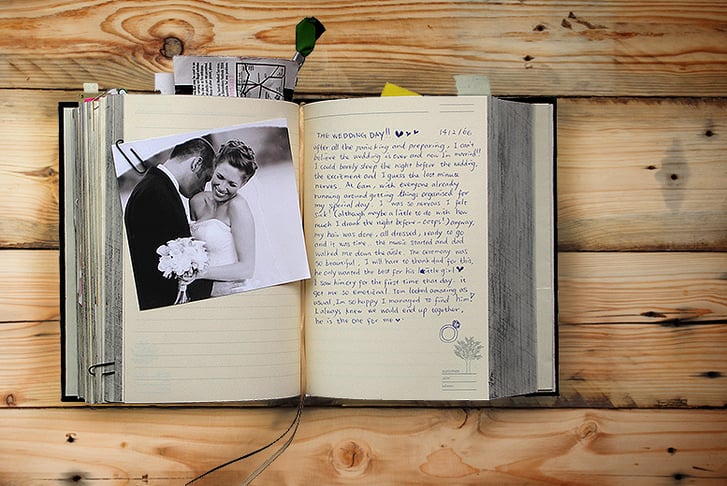 THE WEDDING DAY!! 14/2/66
after all the panicking and preparing, I can't
believe the wedding is over and now I'm married!!
I could barely sleep the night before the wedding,
the excitement and I guess the last minute
nerves. At 6am, with everyone already
running around getting things organised for
my special day. I was so nervous I felt
sick! (although maybe a little to do with how
much I drank the night before - oops!) anyway,
my hair was done, all dressed, ready to go
and it was time. the music started and dad
walked me down the aisle. The ceremony was
so beautiful, I will have to thank dad for this,
he only wanted the best for his little girl
I saw him cry for the first time that day. it
got me so emotional! Tom looked amazing as
usual, Im so happy I managed to find him!
I always knew we would end up together,
he is the one for me